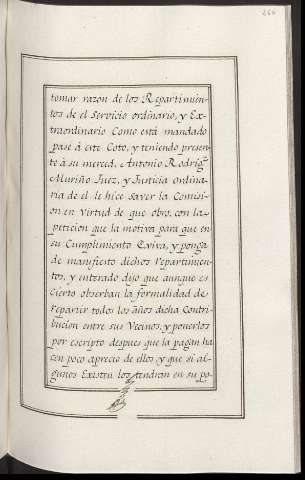 260
tomar razon de los Repartimien-
tos de el Servicio ordinario, y Ex-
traordinario Como está mandado
pase á este Coto, y teniendo presen-
te á su merced. Antonio Rodrig.
Muriño Juez, y Justicia ordina-
ria de el le hice saver la Comisi-
on en virtud de que obro, con la
peticion que la motiva para que en
su Cumplimiento Exiva, y ponga
de manifiesto dichos repartimien-
tos, y enterado dijo que aunque es
Cierto obserban la formalidad de
repartir todos los años dicha Contri-
bucion entre sus Vecinos, y ponerlos
por escripto despues que la pagan ha
cen poco aprecio de ellos, y que si al-
gunos Existen los tendran en su po-